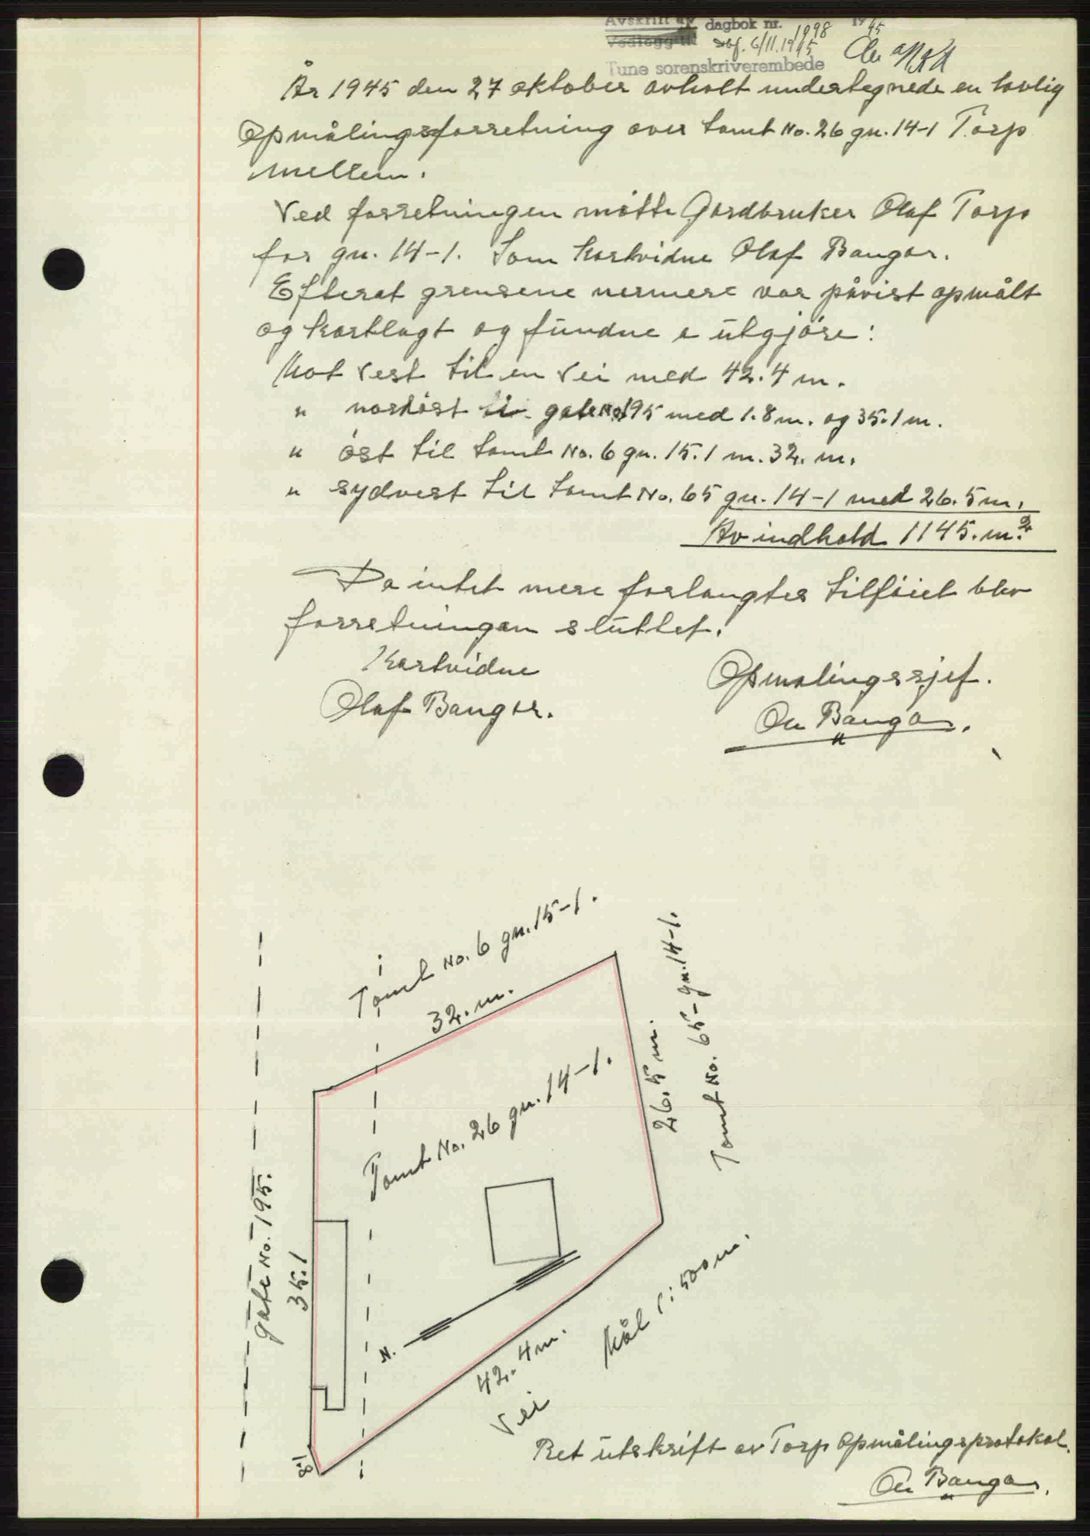 Avskrift av dagbok nr. 1098 1945
Vedlegg til dbf. 6/11.1945
Tune sorenskriverembede
År 1945 den 27 oktober avholt undertegnede en lovlig
Opmålingsforretning over tomt No. 26 gn. 14-1 Torp
mellem.
Ved forretningen møtte Gardbruker Olaf Torp
for gn. 14-1. Som kartvidne Olaf Bangor.
Efterat grensene nermere var påvist opmålt
og kartlagt og fundne a utgjøre:
Mot vest til en vei med 42.4 m.
" nordøst til gate No. 195 med 1.8 m. og 35.1 m.
" øst til tomt No. 6 gn. 15.1 m. 32. m.
" sydvest til tomt No. 65 gn. 14-1 med 26.5 m.
Av indhold 1145. m.²
Da intet mere forlangtes tilføiet blev
forretningen sluttet.
Kartvidne
Olaf Bangor.
Opmalingssjef.
On Bangor.
Tomt No. 6 gn. 15-1.
32. m.
26.5 m.
Tomt No. 65 - gn. 14-1.
Tomt No. 26 gn. 14-1.
gate No. 195.
35.1
N.
42.4 m.
Mål 1:500 m.
Vei
1.8
Ret utskrift av Torp Opmålingsprotokol.
On Bangor.